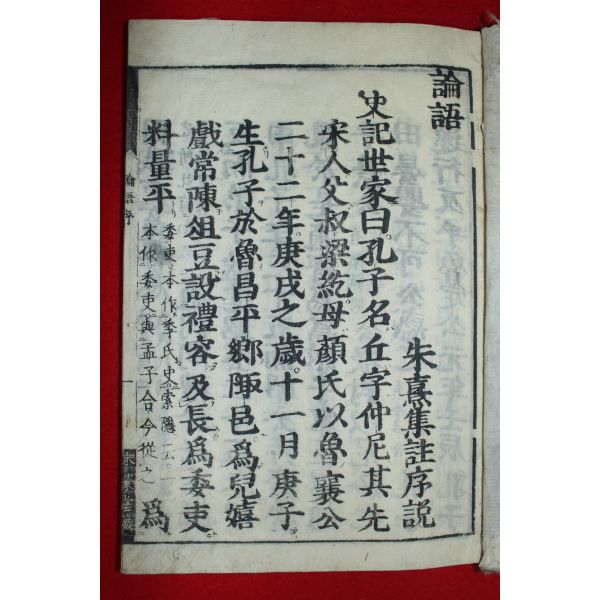 論語
朱熹集註序説
史記世家曰孔子名丘字仲尼其先
宋人父叔梁紇母顏氏以魯襄公
二十二年庚戌之歲十一月庚子
生孔子於魯昌平鄉陬邑爲兒嬉
戲常陳俎豆設禮容及長爲委吏
料量平
委吏本作季氏史索隱云一
本作委吏與孟子合今從之
爲
論語序
一